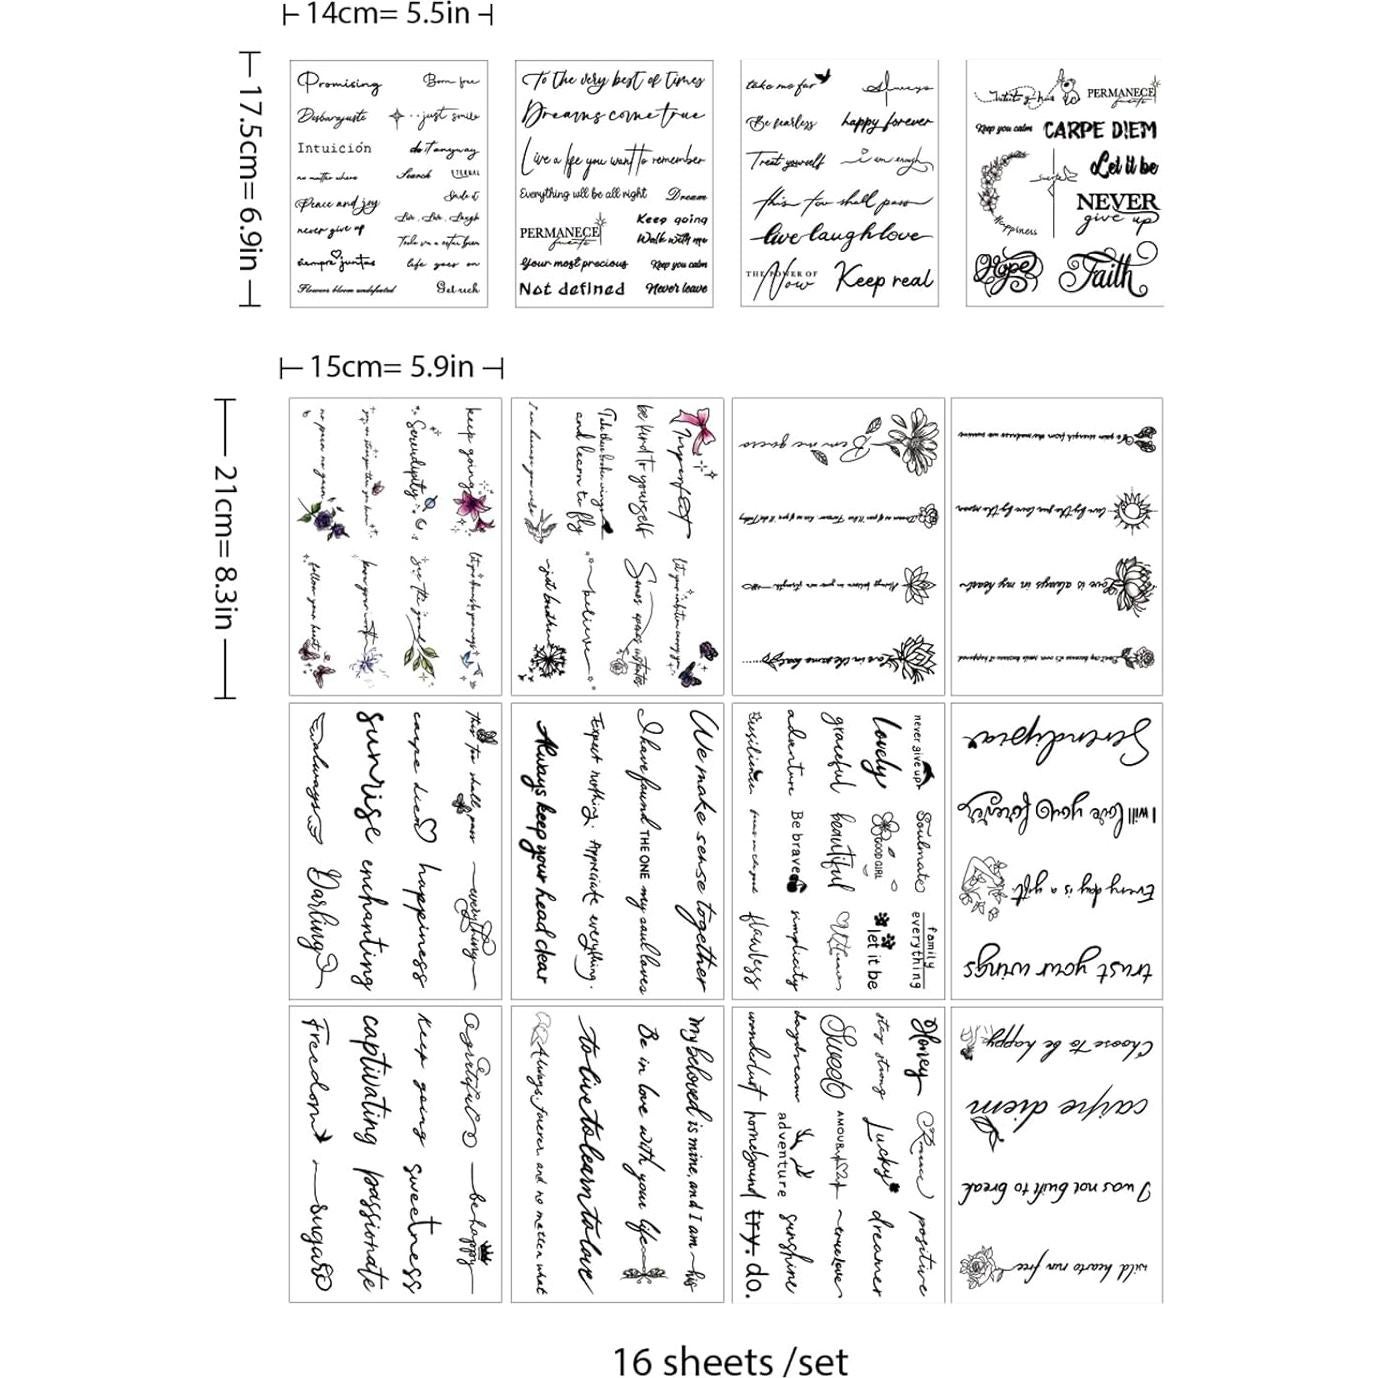 14cm= 5.5in
17.5cm= 6.9in
Promising
Born free
Desbarajuste
just smile
Intuición
do it anyway
no matter where
Search
ETERNAL
Smile it
Peace and joy
Live, Love, Laugh
never give up
Todo va a estar bien
siempre juntas
life goes on
Flowers bloom undefeated
Get rich
To the very best of times
Dreams come true
Live a life you want to remember
Everything will be all right
Dream
PERMANECE
fuerte
Keep going
Walk with me
Your most precious
Keep you calm
Not defined
Never leave
take me far
Always
Be fearless
happy forever
Treat yourself
i am enough
this too shall pass
live laugh love
THE POWER OF
Now
Keep real
PERMANECE
fuerte
Keep you calm
CARPE DIEM
Let it be
NEVER
give up
Happiness
Hope
Faith
15cm= 5.9in
21cm= 8.3in
keep going
Serendipity
no pain no gain
see the good
follow your heart
Imperfect
be kind to yourself
Take these broken wings
and learn to fly
just breathe
believe
Love is always in my heart
live by the sun love by the moon
this too shall pass
everything
carpe diem
happiness
sunrise
enchanting
always
Darling
We make sense together
I have found THE ONE my soul loves
Expect nothing. Appreciate everything.
Always keep your head clear
never give up
Soulmate
family
everything
lovely
GOOD GIRL
let it be
graceful
beautiful
adventure
Be brave
simplicity
Resilience
flawless
Serendipia
I will love you forever
Every day is a gift
trust your wings
grateful
be happy
keep going
sweetness
captivating
passionate
Freedom
sugar
my beloved is mine, and I am his
Be in love with your life
to live to learn to love
Always, forever, and no matter what
Honey
positive
stay strong
Lucky
dreamer
Sweet
AMOUR
true love
daydream
adventure
sunshine
wanderlust
homebound
try. do.
Choose to be happy
carpe diem
I was not built to break
wild hearts run free
16 sheets /set